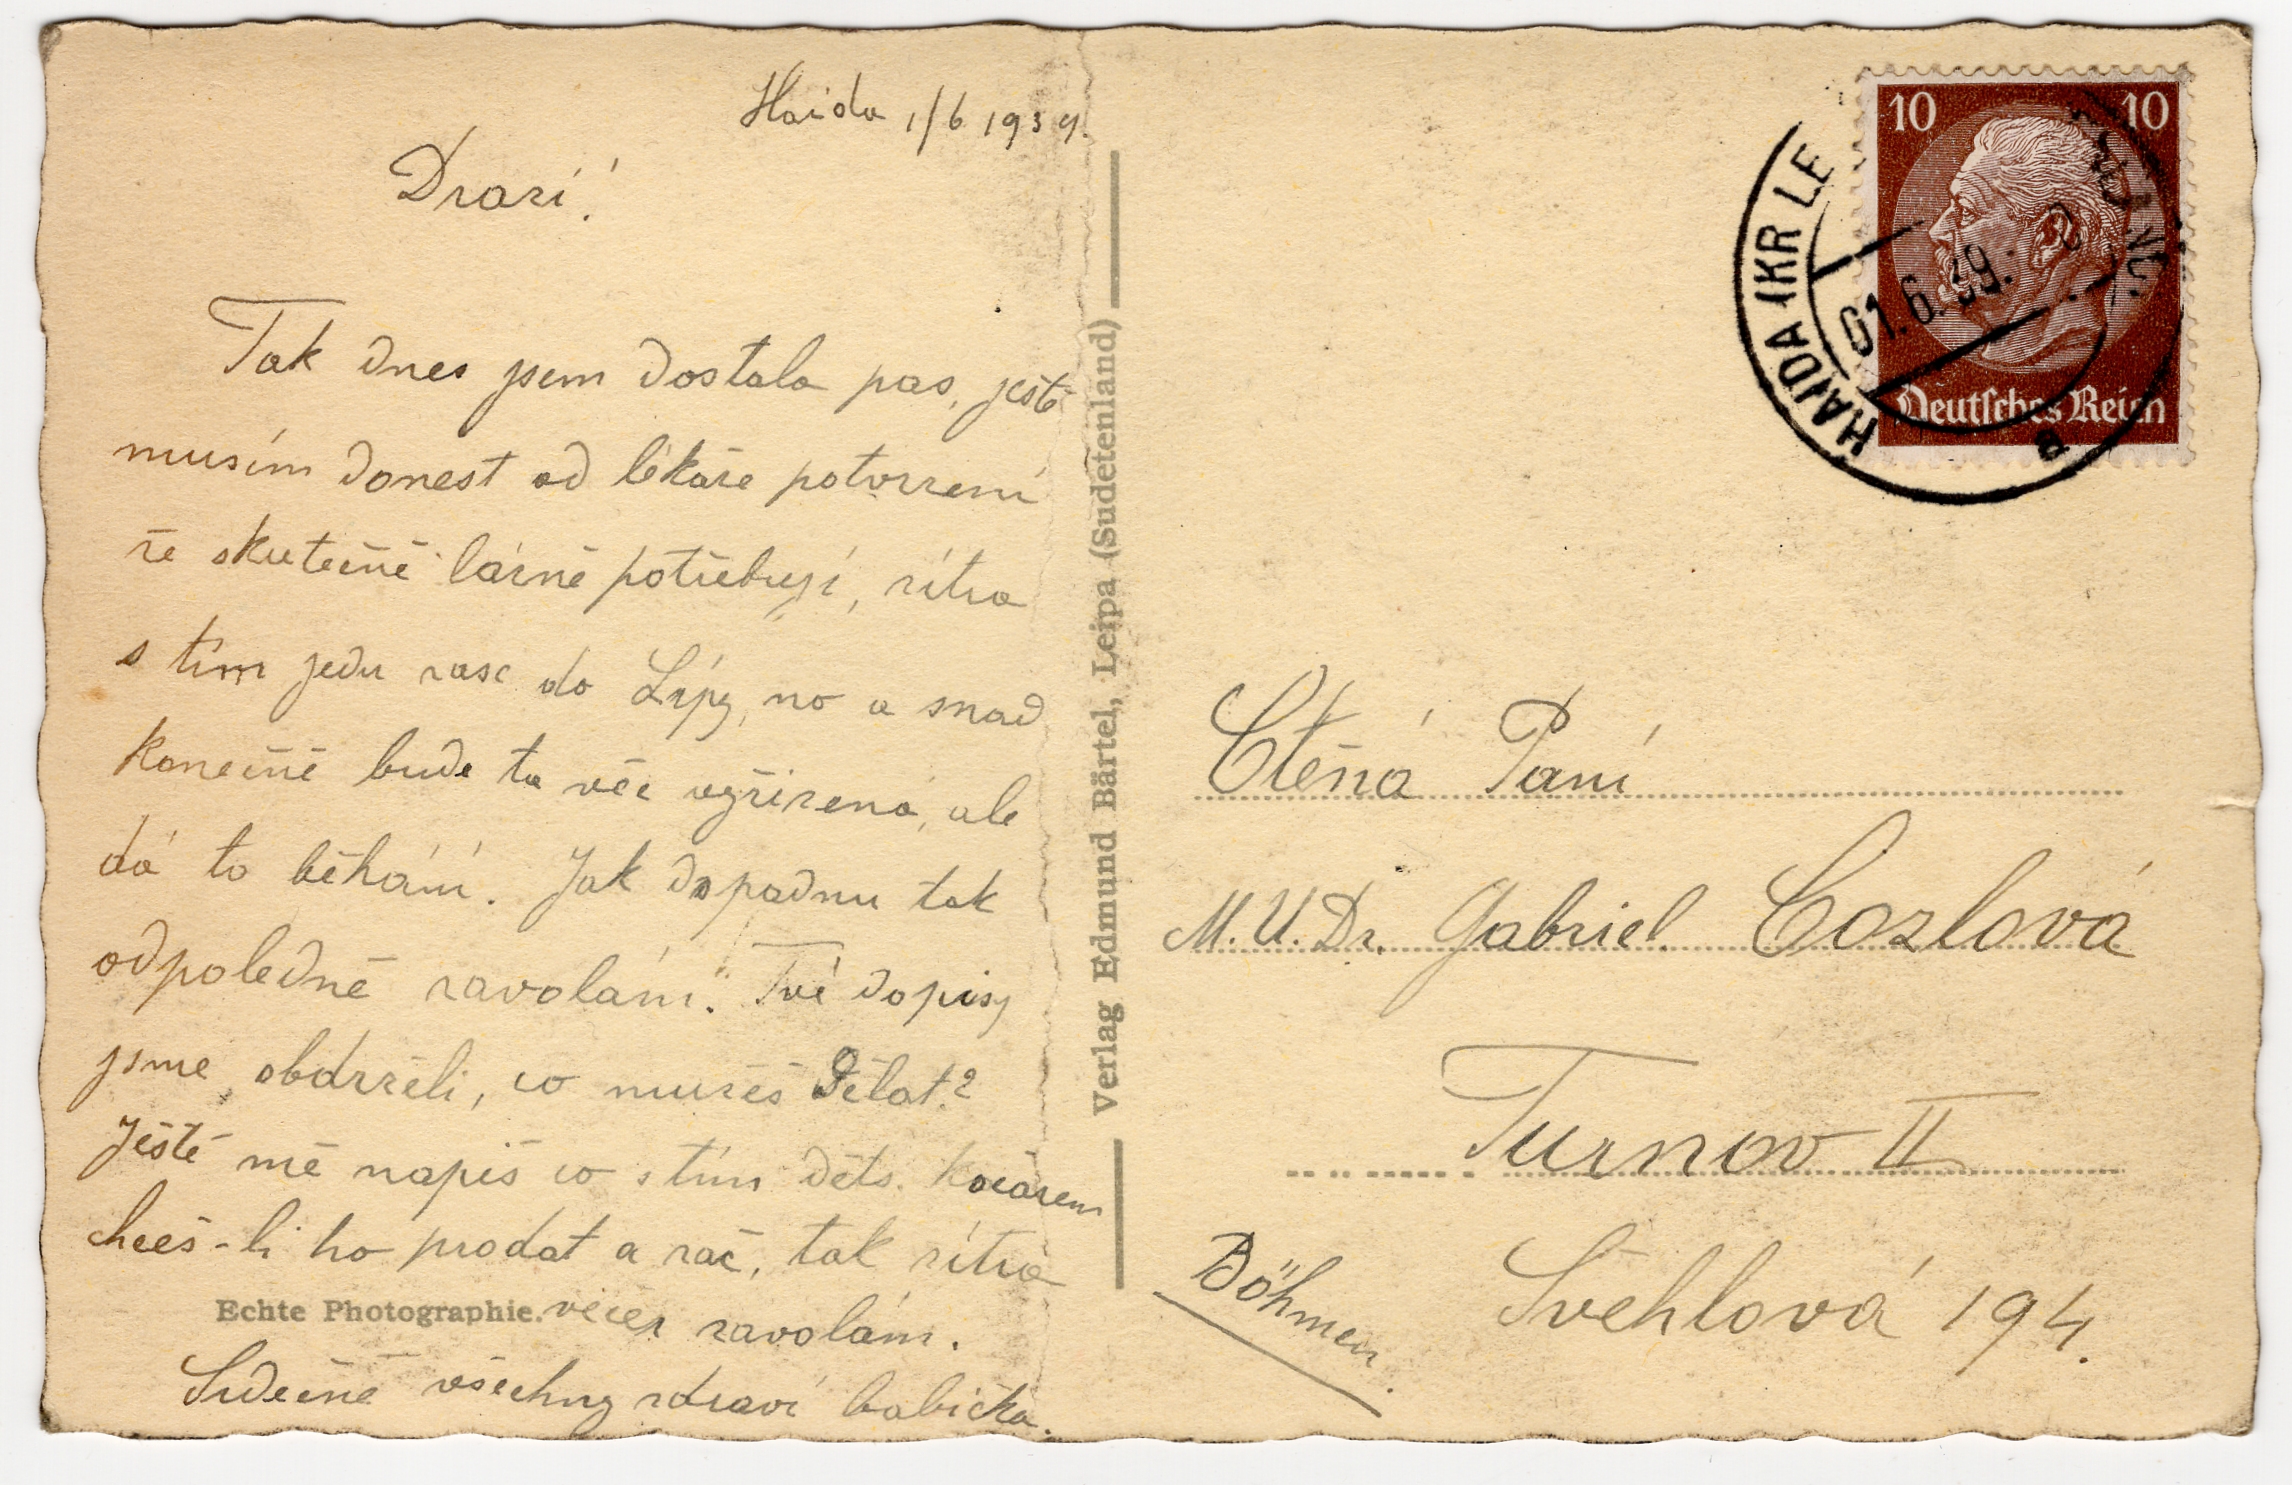 Haida 1/6 1939.
Drazí!
Tak dnes jsem dostala pas, ještě
musím donest od lékaře potvrzení
že skutečně lázně potřebuji, zítra
s tím jedu zase do Lípy, no a snad
konečně bude ta věc vyřízená, ale
dá to běhání. Jak dopadnu tak
odpoledně zavolám. Tvé dopisy
jsme obdrželi, co můžeš dělat?
Ještě mě napiš co s tím děts. kočárem
chceš-li ho prodat a zač, tak zítra
Echte Photographie. večer zavolám.
Srdečně všechny zdraví babička.
Verlag Edmund Bärtel, Leipa (Sudetenland)
10 10
Deutsches Reich
HAIDA (KR LE
01.6.39.
a
Ctěná Paní
M.U.Dr. Gabriel Cozlová
Turnov II
Švehlová 194.
Böhmen.